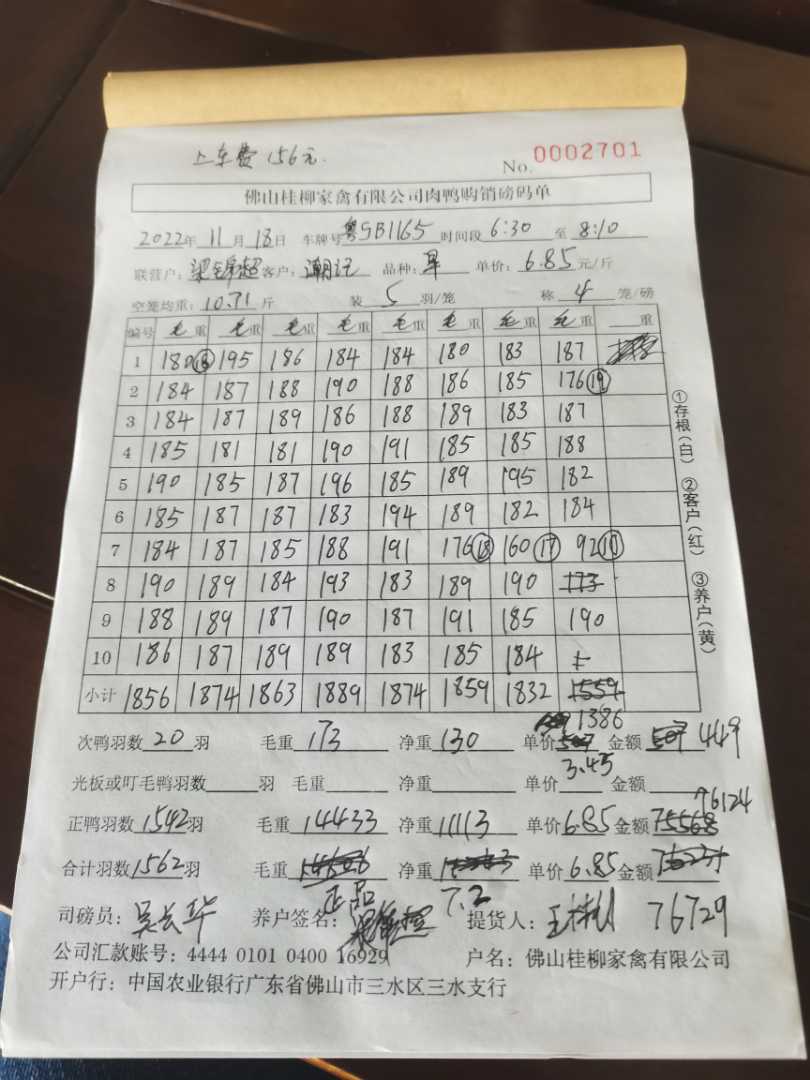 上车费 156元.
No. 0002701
佛山桂柳家禽有限公司肉鸭购销磅码单
2022年 11月 18日 车牌号 粤SB1165 时间段 6:30 至 8:10
联营户: 梁锦超 客户: 潮记 品种: 单价: 6.85 元/斤
空笼均重: 10.71 斤 装 5 羽/笼 称 4 笼/磅
编号 毛重 毛重 毛重 毛重 毛重 毛重 毛重 毛重 重
1 180 ⑱ 195 186 184 184 180 183 187
2 184 187 188 190 188 186 185 176 ⑲
3 184 187 189 186 188 189 183 187
4 185 181 181 190 191 185 185 188
5 190 185 187 196 185 189 195 182
6 185 187 187 183 194 189 182 184
7 184 187 185 188 191 176 ⑱ 160 ⑰ 92 ⑩
8 190 189 184 193 183 189 190 173
9 188 189 187 190 187 191 185 190
10 186 187 189 189 183 185 184
小计 1856 1874 1863 1889 1874 1859 1832 1559
1386
①存根(白) ②客户(红) ③养户(黄)
次鸭羽数 20 羽 毛重 173 净重 130 单价 507 金额 507 449
3.45
光板或叮毛鸭羽数 羽 毛重 净重 单价 金额
76124
正鸭羽数 1542 羽 毛重 14433 净重 11113 单价 6.85 金额 75568
合计羽数 1562 羽 毛重 净重 单价 6.85 金额
正品 7.2
司磅员: 吴长华 养户签名: 梁锦超 提货人: 76729
公司汇款账号: 4444 0101 0400 16929 户名: 佛山桂柳家禽有限公司
开户行: 中国农业银行广东省佛山市三水区三水支行